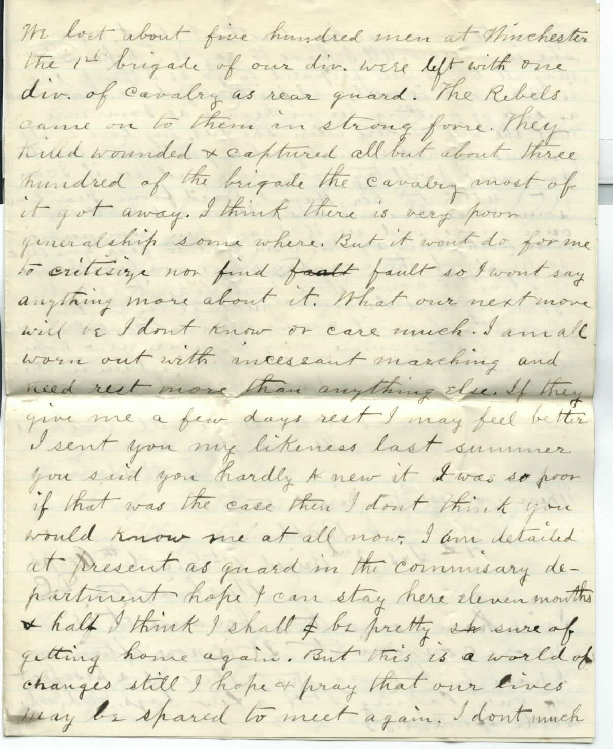 We lost about five hundred men at Winchester
the 1st brigade of our div. were left with one
div. of cavalry as rear guard. The Rebels
came on to them in strong force. They
killd wounded & captured all but about three
hundred of the brigade the cavalry most of
it got away. I think there is very poor
generalship some where. But it wont do for me
to critisize nor find faalt fault so I wont say
anything more about it. What our next move
will be I dont know or care much. I am all
worn out with incessant marching and
need rest more than anything else. If they
give me a few days rest I may feel better
I sent you my likeness last summer
you said you hardly knew it I was so poor
if that was the case then I dont think you
would know me at all now. I am detailed
at present as guard in the commisary de-
partment hope I can stay here eleven months
& half I think I shall be pretty sure of
getting home again. But this is a world of
changes still I hope & pray that our lives
may be spared to meet again. I dont much